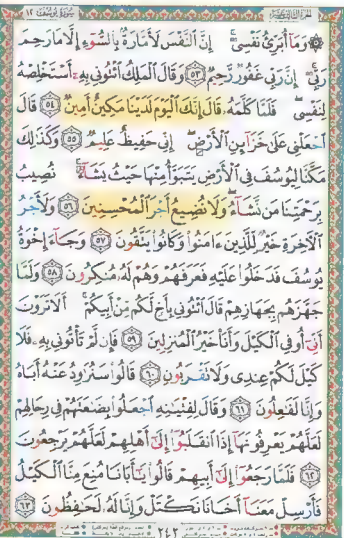 الجزء الثالث عشر سورة يوسف ١٢
وَمَآ أُبَرِّئُ نَفْسِىٓ إِنَّ ٱلنَّفْسَ لَأَمَّارَةٌۢ بِٱلسُّوٓءِ إِلَّا مَا رَحِمَ
رَبِّىٓ إِنَّ رَبِّى غَفُورٌ رَّحِيمٌ ٥٣ وَقَالَ ٱلْمَلِكُ ٱئْتُونِى بِهِۦٓ أَسْتَخْلِصْهُ
لِنَفْسِى فَلَمَّا كَلَّمَهُۥ قَالَ إِنَّكَ ٱلْيَوْمَ لَدَيْنَا مَكِينٌ أَمِينٌ ٥٤ قَالَ
ٱجْعَلْنِى عَلَىٰ خَزَآئِنِ ٱلْأَرْضِ إِنِّى حَفِيظٌ عَلِيمٌ ٥٥ وَكَذَٰلِكَ
مَكَّنَّا لِيُوسُفَ فِى ٱلْأَرْضِ يَتَبَوَّأُ مِنْهَا حَيْثُ يَشَآءُ نُصِيبُ
بِرَحْمَتِنَا مَن نَّشَآءُ وَلَا نُضِيعُ أَجْرَ ٱلْمُحْسِنِينَ ٥٦ وَلَأَجْرُ
ٱلْءَاخِرَةِ خَيْرٌ لِّلَّذِينَ ءَامَنُوا۟ وَكَانُوا۟ يَتَّقُونَ ٥٧ وَجَآءَ إِخْوَةُ
يُوسُفَ فَدَخَلُوا۟ عَلَيْهِ فَعَرَفَهُمْ وَهُمْ لَهُۥ مُنكِرُونَ ٥٨ وَلَمَّا
جَهَّزَهُم بِجَهَازِهِمْ قَالَ ٱئْتُونِى بِأَخٍ لَّكُم مِّنْ أَبِيكُمْ أَلَا تَرَوْنَ
أَنِّىٓ أُوفِى ٱلْكَيْلَ وَأَنَا۠ خَيْرُ ٱلْمُنزِلِينَ ٥٩ فَإِن لَّمْ تَأْتُونِى بِهِۦ فَلَا
كَيْلَ لَكُمْ عِندِى وَلَا تَقْرَبُونِ ٦٠ قَالُوا۟ سَنُرَٰوِدُ عَنْهُ أَبَاهُ
وَإِنَّا لَفَٰعِلُونَ ٦١ وَقَالَ لِفِتْيَٰنِهِ ٱجْعَلُوا۟ بِضَٰعَتَهُمْ فِى رِحَالِهِمْ
لَعَلَّهُمْ يَعْرِفُونَهَآ إِذَا ٱنقَلَبُوٓا۟ إِلَىٰٓ أَهْلِهِمْ لَعَلَّهُمْ يَرْجِعُونَ
٦٢ فَلَمَّا رَجَعُوٓا۟ إِلَىٰٓ أَبِيهِمْ قَالُوا۟ يَٰٓأَبَانَا مُنِعَ مِنَّا ٱلْكَيْلُ
فَأَرْسِلْ مَعَنَآ أَخَانَا نَكْتَلْ وَإِنَّا لَهُۥ لَحَٰفِظُونَ ٦٣
٢٤٢